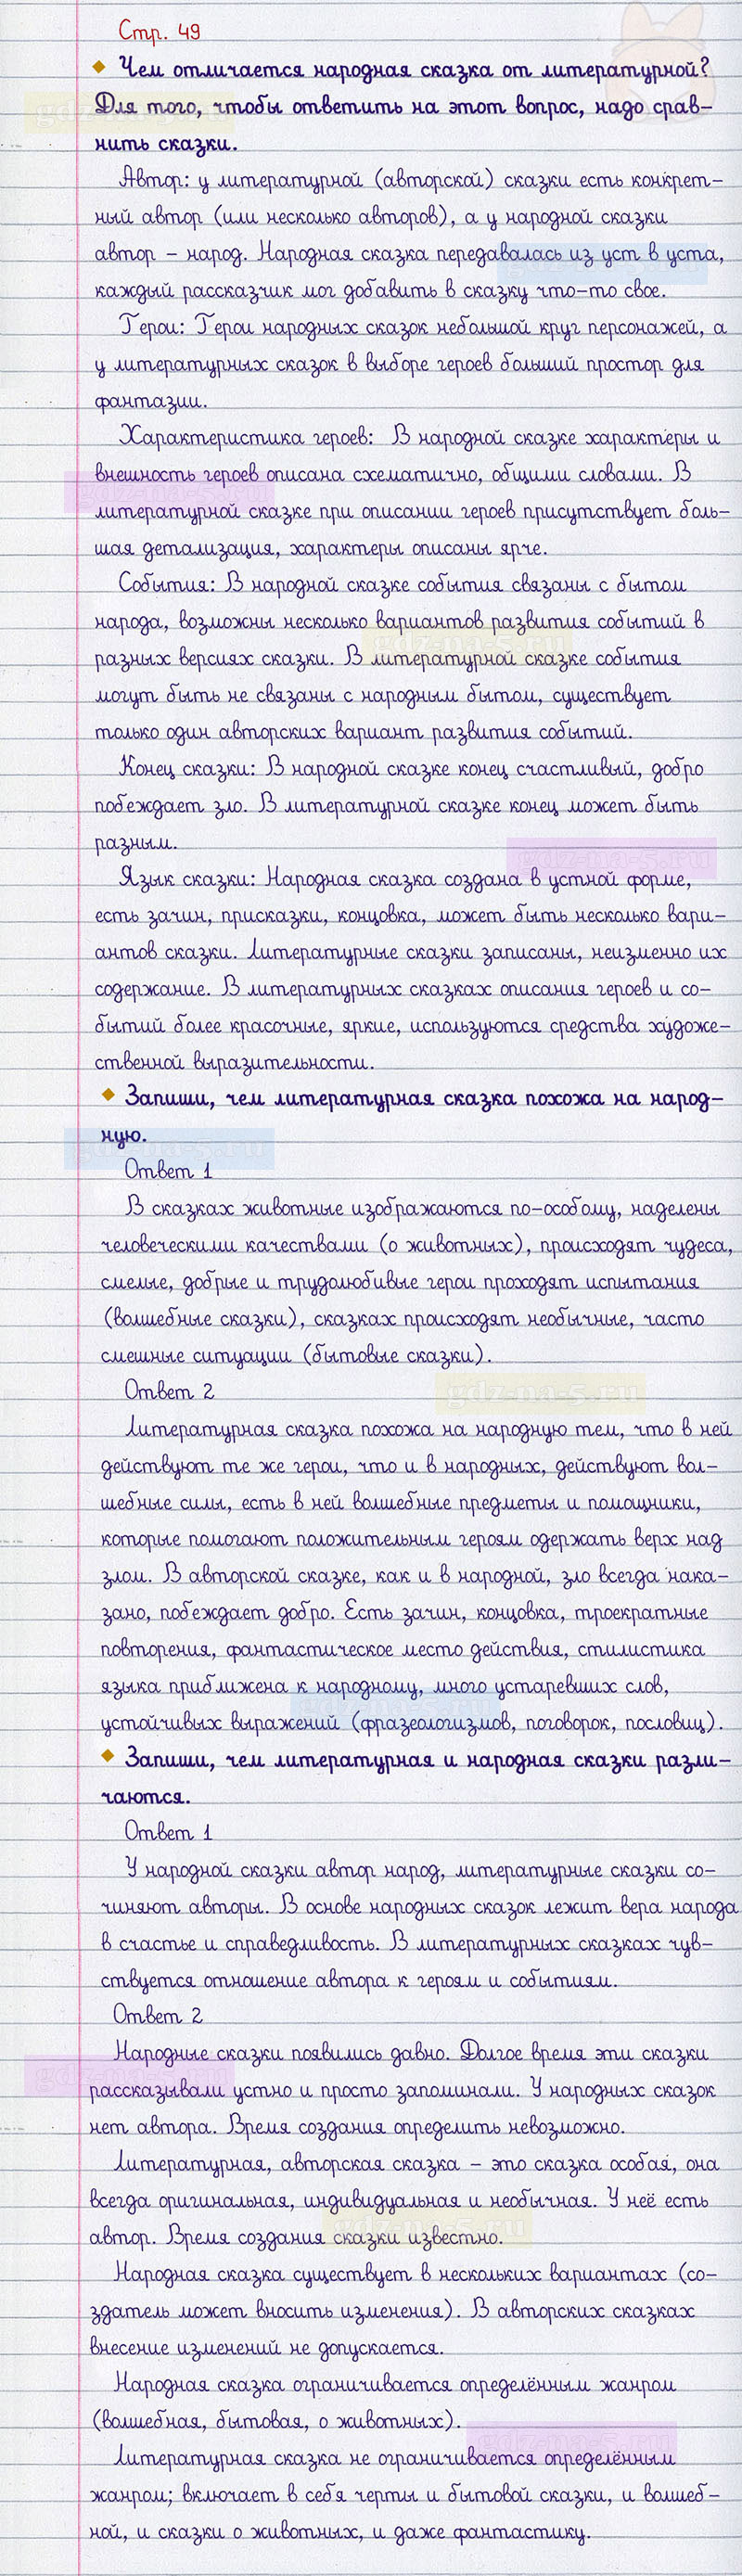 Стр. 49
Чем отличается народная сказка от литературной?
Для того, чтобы ответить на этот вопрос, надо срав-
нить сказки.
Автор: у литературной (авторской) сказки есть конкрет-
ный автор (или несколько авторов), а у народной сказки
автор – народ. Народная сказка передавалась из уст в уста,
каждый рассказчик мог добавить в сказку что-то свое.
Герои: Герои народных сказок небольшой круг персонажей, а
у литературных сказок в выборе героев больший простор для
фантазии.
Характеристика героев: В народной сказке характеры и
внешность героев описана схематично, общими словами. В
литературной сказке при описании героев присутствует боль-
шая детализация, характеры описаны ярче.
События: В народной сказке события связаны с бытом
народа, возможны несколько вариантов развития событий в
разных версиях сказки. В литературной сказке события
могут быть не связаны с народным бытом, существует
только один авторских вариант развития событий.
Конец сказки: В народной сказке конец счастливый, добро
побеждает зло. В литературной сказке конец может быть
разным.
Язык сказки: Народная сказка создана в устной форме,
есть зачин, присказки, концовка, может быть несколько вари-
антов сказки. Литературные сказки записаны, неизменно их
содержание. В литературных сказках описания героев и со-
бытий более красочные, яркие, используются средства художе-
ственной выразительности.
Запиши, чем литературная сказка похожа на народ-
ную.
Ответ 1
В сказках животные изображаются по-особому, наделены
человеческими качествами (о животных), происходят чудеса,
смелые, добрые и трудолюбивые герои проходят испытания
(волшебные сказки), сказках происходят необычные, часто
смешные ситуации (бытовые сказки).
Ответ 2
Литературная сказка похожа на народную тем, что в ней
действуют те же герои, что и в народных, действуют вол-
шебные силы, есть в ней волшебные предметы и помощники,
которые помогают положительным героям одержать верх над
злом. В авторской сказке, как и в народной, зло всегда нака-
зано, побеждает добро. Есть зачин, концовка, троекратные
повторения, фантастическое место действия, стилистика
языка приближена к народному, много устаревших слов,
устойчивых выражений (фразеологизмов, поговорок, пословиц).
Запиши, чем литературная и народная сказки разли-
чаются.
Ответ 1
У народной сказки автор народ, литературные сказки со-
чиняют авторы. В основе народных сказок лежит вера народа
в счастье и справедливость. В литературных сказках чув-
ствуется отношение автора к героям и событиям.
Ответ 2
Народные сказки появились давно. Долгое время эти сказки
рассказывали устно и просто запоминали. У народных сказок
нет автора. Время создания определить невозможно.
Литературная, авторская сказка – это сказка особая, она
всегда оригинальная, индивидуальная и необычная. У неё есть
автор. Время создания сказки известно.
Народная сказка существует в нескольких вариантах (со-
здатель может вносить изменения). В авторских сказках
внесение изменений не допускается.
Народная сказка ограничивается определённым жанром
(волшебная, бытовая, о животных).
Литературная сказка не ограничивается определённым
жанром; включает в себя черты и бытовой сказки, и волшеб-
ной, и сказки о животных, и даже фантастику.